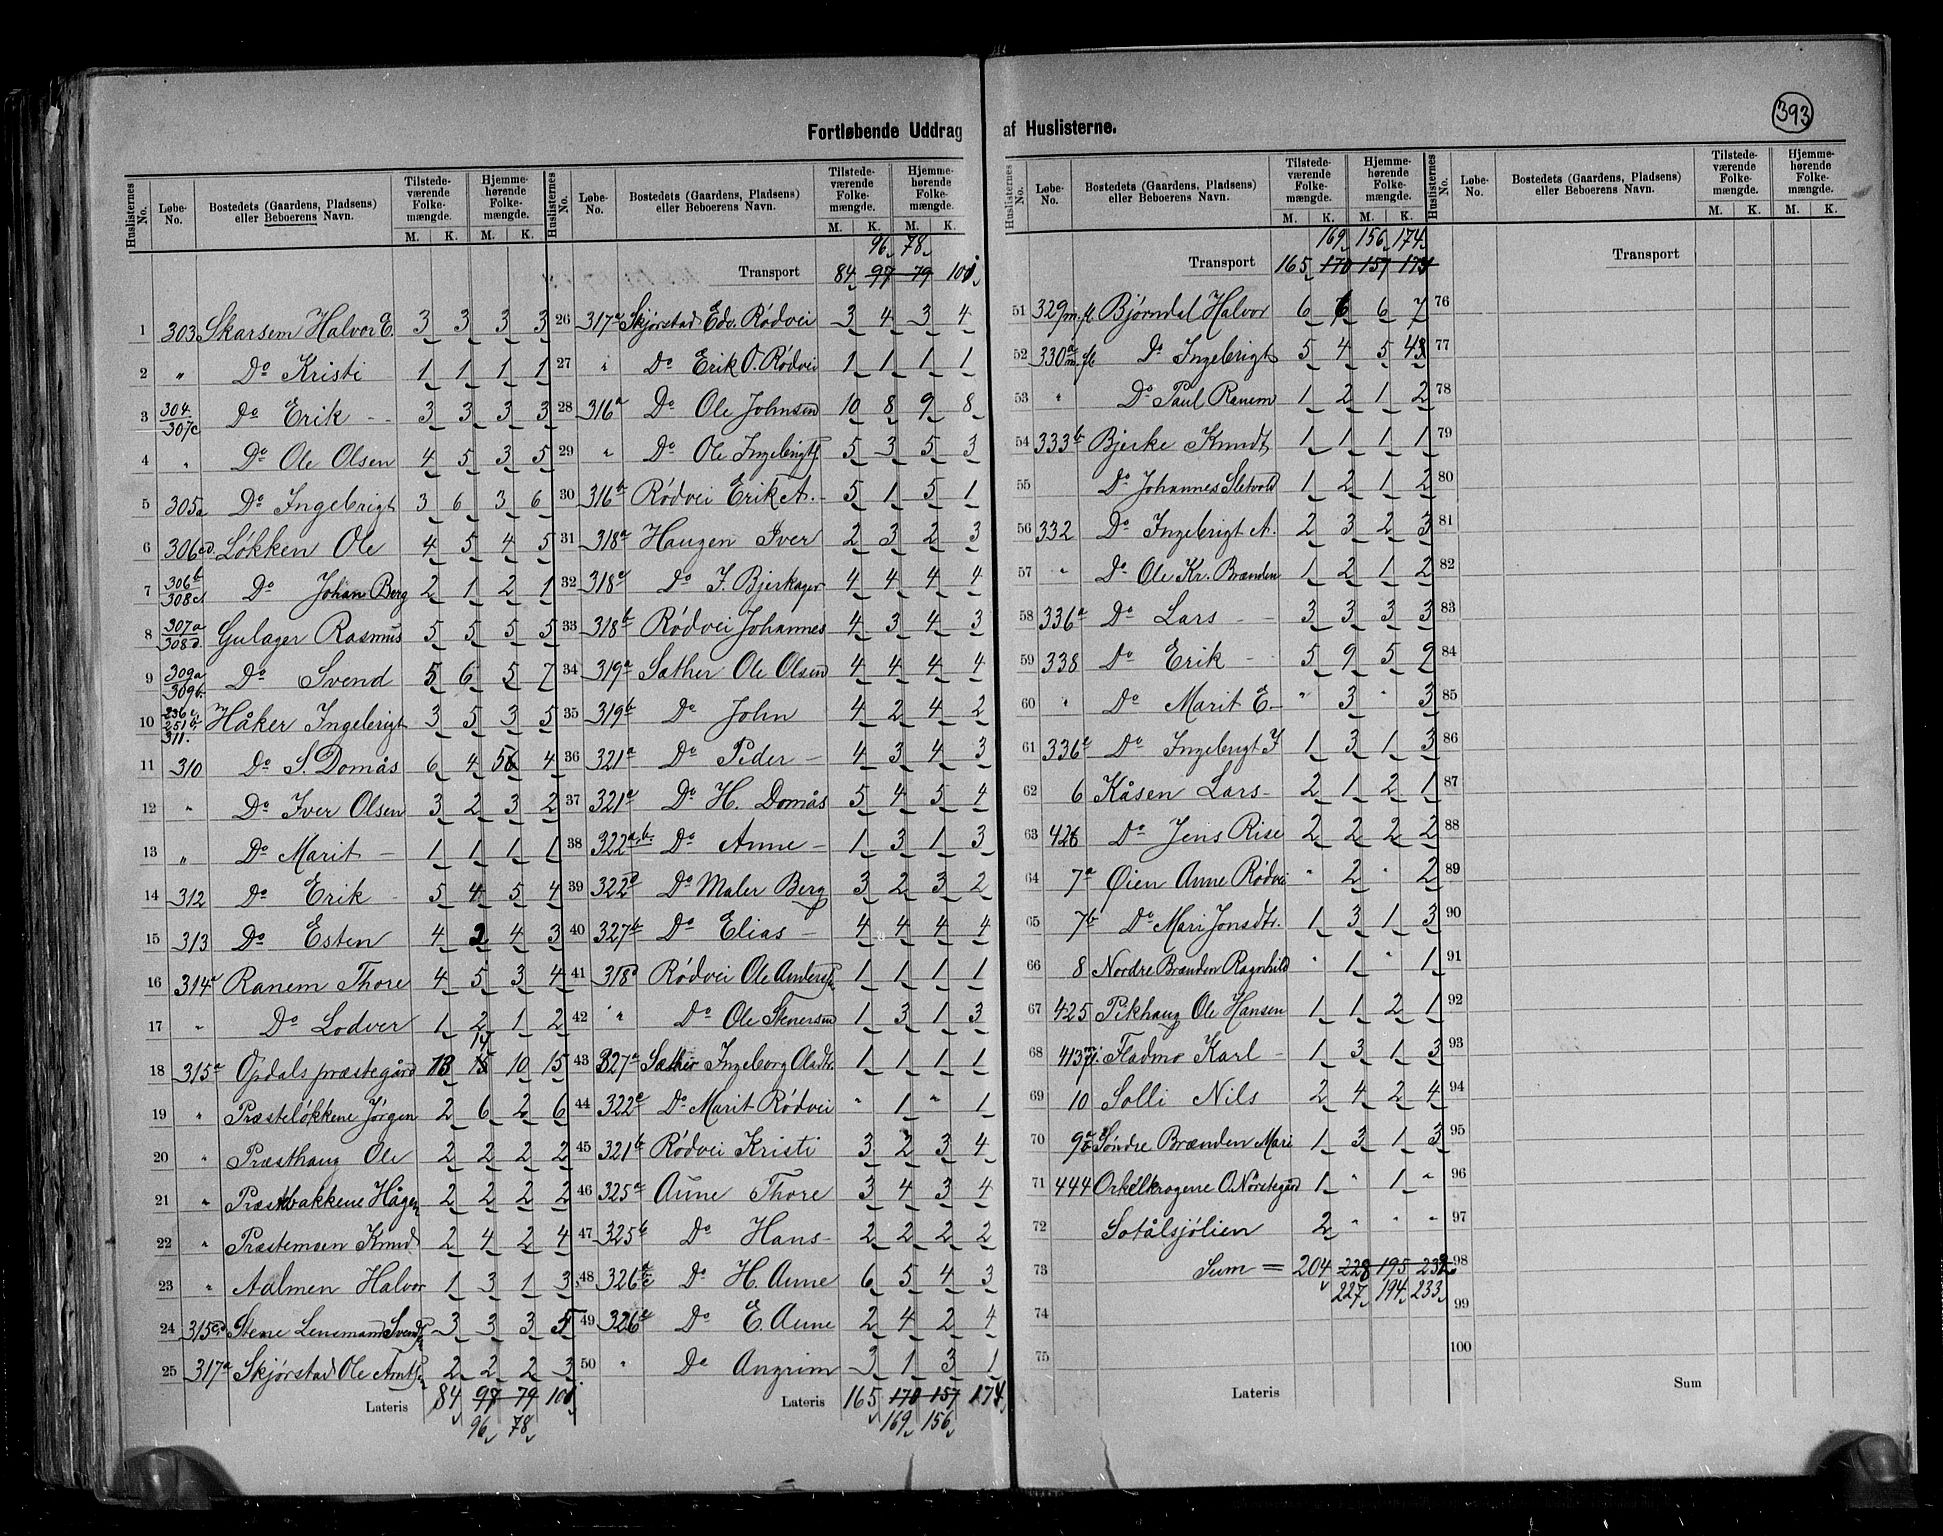 393
Fortløbende Uddrag af Huslisterne.
Huslisternes No. Løbe-No. Bostedets (Gaardens, Pladsens) eller Beboerens Navn. Tilstedeværende Folkemængde. M. K. Hjemmehørende Folkemængde. M. K.
1 303 Skarsem Halvor E. 3 3 3 3
2 " Do Kristi 1 1 1 1
3 304 307c Do Erik - 3 3 3 3
4 " Do Ole Olsen 4 5 3 5
5 305a Do Ingebrigt 3 6 3 6
6 306cd. Løkken Ole 4 5 4 5
7 306b 308c Do Johan Berg 2 1 2 1
8 307a 308d. Gulager Rasmus 5 5 5 5
9 309a 309b. Do Svend 5 6 5 7
10 311. Håker Ingebrigt 3 5 3 5
11 310 Do S. Domås 6 4 5 4
12 " Do Iver Olsen 3 2 3 2
13 " Do Marit - 1 1 1 1
14 312 Do Erik - 5 4 5 4
15 313 Do Esten 4 2 4 3
16 314a Ranem Thore 4 5 3 4
17 " Do Lodver 1 2 1 2
18 315a Opdals præstegård 13 14 10 15
19 " Præsteløkkene Jørgen 2 6 2 6
20 " Præsthaug Ole 2 2 2 2
21 " Præstbakkene Hågen 2 2 2 2
22 " Præstemoen Knud 2 4 2 4
23 " Aalmen Halvor 1 3 1 3
24 315 Stene Lensmand Svend 3 3 3 5
25 317a Skjørstad Ole Arnts 2 2 2 3
Lateris 84 97 79 101
96 78
96 78
Transport 84 97 79 101
26 317a Skjørstad Edv. Rødvei 3 4 3 4
27 " Do Erik O. Rødvei 1 1 1 1
28 316a Do Ole Johnsen 10 8 9 8
29 " Do Ole Ingebrigts 5 3 5 3
30 316b Rødvei Erik A. - 5 1 5 1
31 318a Haugen Iver 2 3 2 3
32 318c Do J. Bjerkager 4 4 4 4
33 318b Rødvei Johannes 4 3 4 3
34 319a Sæther Ole Olsen 4 4 4 4
35 319b Do John 4 2 4 2
36 321a Do Peder - 4 3 4 3
37 321c Do H. Domås 5 4 5 4
38 322a,b Do Anne - 1 3 1 3
39 322d Do Maler Berg 3 2 3 2
40 327b Do Elias - 4 4 4 4
41 318d Rødvei Ole Anders 1 1 1 1
42 " Do Ole Stenersen 1 3 1 3
43 327a Sæther Ingeborg Olsdtr. 1 1 1 1
44 322c Do Marit Rødvei " 1 " 1
45 321b Rødvei Kristi 3 2 3 4
46 325a Aune Thore 3 4 3 4
47 325b Do Hans - 2 2 2 2
48 326 Do H. Aune 6 5 4 3
49 326 Do E. Aune 2 4 2 4
50 " Do Angrim 3 1 3 1
Lateris 165 170 157 174
169 156
Huslisternes No. Løbe-No. Bostedets (Gaardens, Pladsens) eller Beboerens Navn. Tilstedeværende Folkemængde. M. K. Hjemmehørende Folkemængde. M. K.
169 156 174
Transport 165 170 157 174
51 329m.fl. Bjørndal Halvor 6 6 6 7
52 330a m.fl. Do Ingebrigt 5 4 5 4
53 " Do Paul Ranem 1 2 1 2
54 333b Bjerke Knudt 1 1 1 1
55 Do Johannes Sletvold 1 2 1 2
56 332 Do Ingebrigt A. 2 3 2 3
57 " Do Ole Kr. Brænden 1 2 1 2
58 336a Do Lars - 3 3 3 3
59 338 Do Erik - 5 9 5 9
60 " Do Marit E. - " 3 " 3
61 336c Do Ingebrigt J 1 3 1 3
62 6 Kåsen Lars - 2 1 2 1
63 426 Do Jens Rise 2 2 2 2
64 7a Øien Anne Rødvei " 2 " 2
65 7b Do Mari Jonsdtr. 1 3 1 3
66 8 Nordre Brænden Ragnhild " 1 " 1
67 425 Pikhaug Ole Hansen 1 1 2 1
68 413 Fladmo Karl - 1 3 1 3
69 10 Solli Nils 2 4 2 4
70 9 Søndre Brænden Mari 1 3 1 3
71 444 Orkelkrogene O. Nørstegård 1 " 1 "
72 Sotålsjølien 2 " " "
73 Sum = 204 228 195 232
227 194 233
74
75
Lateris
Transport
76
77
78
79
80
81
82
83
84
85
86
87
88
89
90
91
92
93
94
95
96
97
98
99
100
Sum